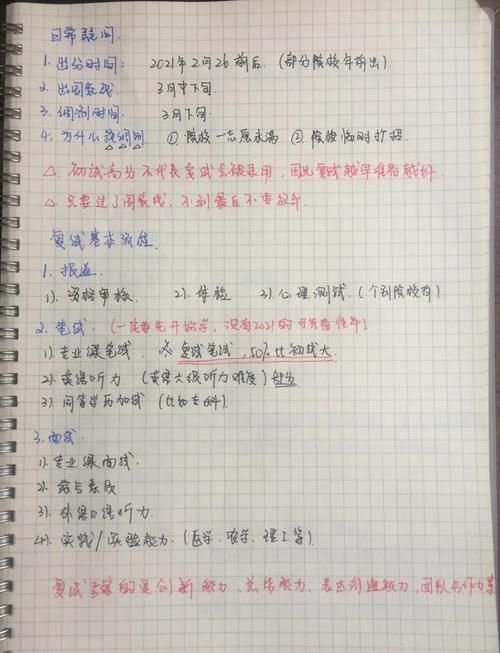 日常疑问.
1. 出分时间: 2021年2月26前后. (部分院校年前出)
2. 出国家线. 3月中下旬.
3. 调剂时间. 3月下旬.
4. 为什么 调剂 ① 院校一志愿未满 ② 院校临时扩招
△ 初试高分不代表复试会被录用, 因此复试越早准备越好.
△ 只要过了国家线, 不到最后不要放弃.
复试基本流程.
1. 报道.
1). 资格审核. 2). 体检 3). 心理测试. (个别院校有)
2. 笔试. (一定要先开始学, 没有2021的可先看往年)
1). 专业课笔试. 复试笔试, 50% 比初试大.
2). 英语听力. (英语六级听力难度) 部分
3). 同等学历加试 (比如专科).
3. 面试.
1). 专业课面试.
2). 综合素质
3). 外语口语听力.
4). 实践/实验能力. (医学. 农学. 理工等)
复试考察的是创新能力、总结能力、表达沟通能力, 团队合作力